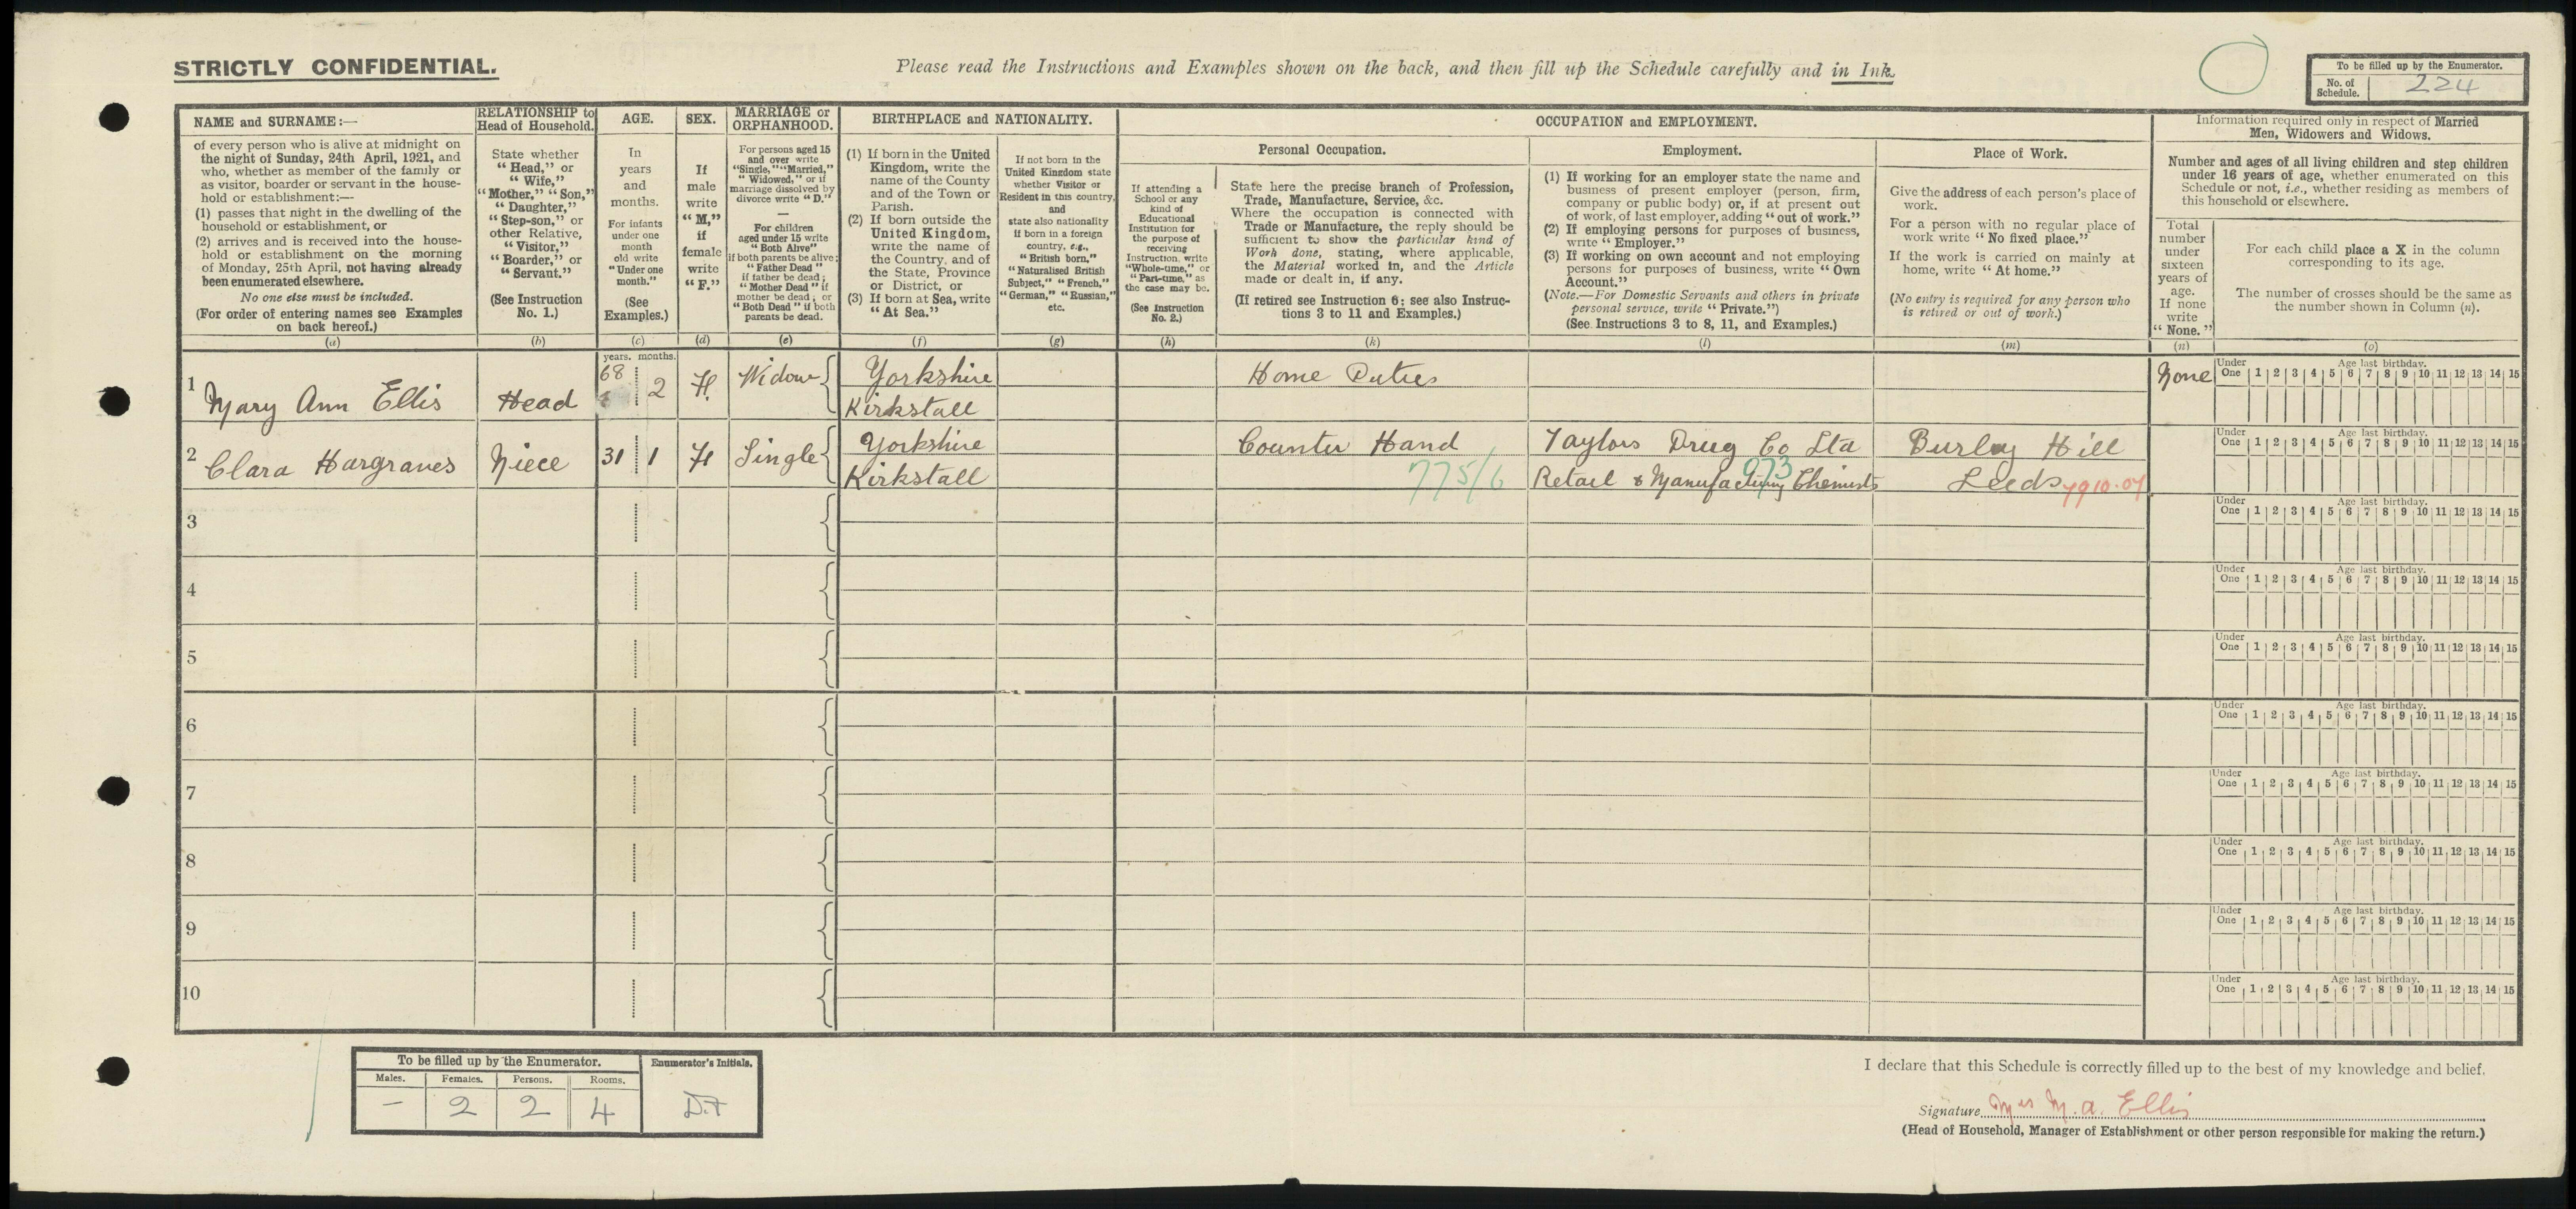 STRICTLY CONFIDENTIAL.
Please read the Instructions and Examples shown on the back, and then fill up the Schedule carefully and in Ink.
To be filled up by the Enumerator.
No. of Schedule. 224
NAME and SURNAME:—
of every person who is alive at midnight on
the night of Sunday, 24th April, 1921, and
who, whether as member of the family or
as visitor, boarder or servant in the house-
hold or establishment:—
(1) passes that night in the dwelling of the
household or establishment, or
(2) arrives and is received into the house-
hold or establishment on the morning
of Monday, 25th April, not having already
been enumerated elsewhere.
No one else must be included.
(For order of entering names see Examples
on back hereof.)
(a)
RELATIONSHIP to
Head of Household.
State whether
"Head," or
"Wife,"
"Mother," "Son,"
"Daughter,"
"Step-son," or
other Relative,
"Visitor,"
"Boarder," or
"Servant."
(See Instruction
No. 1.)
(b)
AGE.
In
years
and
months.
For infants
under one
month
old write
"Under one
month."
(See
Examples.)
(c)
SEX.
If
male
write
"M,"
if
female
write
"F."
(d)
MARRIAGE or
ORPHANHOOD.
For persons aged 15
and over write
"Single," "Married,"
"Widowed," or if
marriage dissolved by
divorce write "D."
—
For children
aged under 15 write
"Both Alive"
if both parents be alive;
"Father Dead"
if father be dead;
"Mother Dead" if
mother be dead; or
"Both Dead" if both
parents be dead.
(e)
BIRTHPLACE and NATIONALITY.
(1) If born in the United
Kingdom, write the
name of the County
and of the Town or
Parish.
(2) If born outside the
United Kingdom,
write the name of
the Country, and of
the State, Province
or District, or
(3) If born at Sea, write
"At Sea."
(f)
If not born in the
United Kingdom state
whether Visitor or
Resident in this country,
and
state also nationality
if born in a foreign
country, e.g.,
"British born,"
"Naturalised British
Subject," "French,"
"German," "Russian,"
etc.
(g)
OCCUPATION and EMPLOYMENT.
If attending a
School or any
kind of
Educational
Institution for
the purpose of
receiving
Instruction, write
"Whole-time," or
"Part-time," as
the case may be.
(See Instruction
No. 2.)
(h)
Personal Occupation.
State here the precise branch of Profession,
Trade, Manufacture, Service, &c.
Where the occupation is connected with
Trade or Manufacture, the reply should be
sufficient to show the particular kind of
Work done, stating, where applicable,
the Material worked in, and the Article
made or dealt in, if any.
(If retired see Instruction 6; see also Instruc-
tions 3 to 11 and Examples.)
(k)
Employment.
(1) If working for an employer state the name and
business of present employer (person, firm,
company or public body) or, if at present out
of work, of last employer, adding "out of work."
(2) If employing persons for purposes of business,
write "Employer."
(3) If working on own account and not employing
persons for purposes of business, write "Own
Account."
(Note.—For Domestic Servants and others in private
personal service, write "Private.")
(See Instructions 3 to 8, 11, and Examples.)
(l)
Place of Work.
Give the address of each person's place of
work.
For a person with no regular place of
work write "No fixed place."
If the work is carried on mainly at
home, write "At home."
(No entry is required for any person who
is retired or out of work.)
(m)
Information required only in respect of Married
Men, Widowers and Widows.
Number and ages of all living children and step children
under 16 years of age, whether enumerated on this
Schedule or not, i.e., whether residing as members of
this household or elsewhere.
Total
number
under
sixteen
years of
age.
If none
write
"None."
(n)
For each child place a X in the column
corresponding to its age.
The number of crosses should be the same as
the number shown in Column (n).
(o)
years. months.
1 Mary Ann Ellis Head 68 2 F. Widow Yorkshire Kirkstall Home Duties None
Under One Age last birthday. 1 2 3 4 5 6 7 8 9 10 11 12 13 14 15
2 Clara Hargraves Niece 31 1 F Single Yorkshire Kirkstall Counter Hand Taylors Drug Co Ltd Burley Hill
775/6 Retail & Manufacturing Chemists 973 Leeds
Under One Age last birthday. 1 2 3 4 5 6 7 8 9 10 11 12 13 14 15
3
Under One Age last birthday. 1 2 3 4 5 6 7 8 9 10 11 12 13 14 15
4
Under One Age last birthday. 1 2 3 4 5 6 7 8 9 10 11 12 13 14 15
5
Under One Age last birthday. 1 2 3 4 5 6 7 8 9 10 11 12 13 14 15
6
Under One Age last birthday. 1 2 3 4 5 6 7 8 9 10 11 12 13 14 15
7
Under One Age last birthday. 1 2 3 4 5 6 7 8 9 10 11 12 13 14 15
8
Under One Age last birthday. 1 2 3 4 5 6 7 8 9 10 11 12 13 14 15
9
Under One Age last birthday. 1 2 3 4 5 6 7 8 9 10 11 12 13 14 15
10
Under One Age last birthday. 1 2 3 4 5 6 7 8 9 10 11 12 13 14 15
To be filled up by the Enumerator. Enumerator's Initials.
Males. Females. Persons. Rooms.
— 2 2 4
I declare that this Schedule is correctly filled up to the best of my knowledge and belief.
Signature Mrs M. A. Ellis
(Head of Household, Manager of Establishment or other person responsible for making the return.)